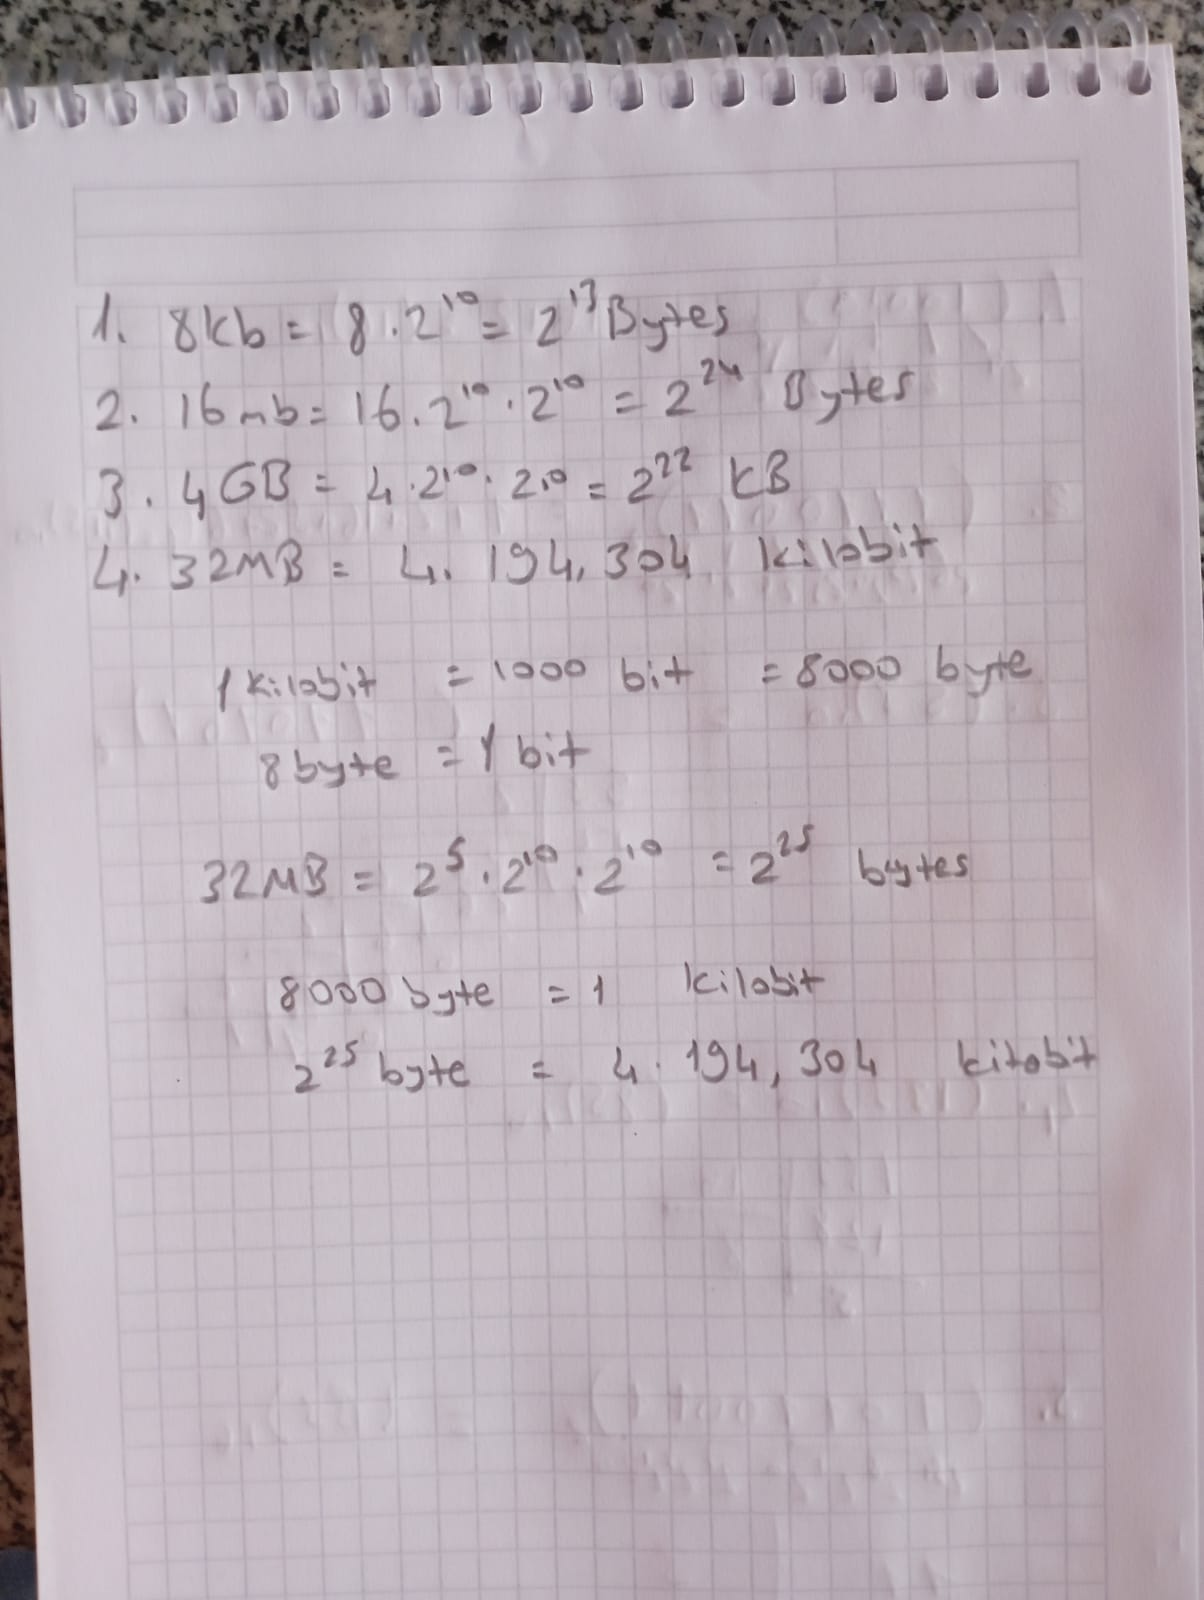 1. 8kb = 8 . 2¹⁰ = 2¹³ Bytes
2. 16mb = 16 . 2¹⁰ . 2¹⁰ = 2²⁴ Bytes
3. 4GB = 4 . 2¹⁰ . 2¹⁰ = 2²² kB
4. 32MB = 4. 194, 304 kilobit
1 kilobit = 1000 bit = 8000 byte
8 byte = 1 bit
32MB = 2⁵ . 2¹⁰ . 2¹⁰ = 2²⁵ bytes
8000 byte = 1 kilobit
2²⁵ byte = 4. 194, 304 kilobit